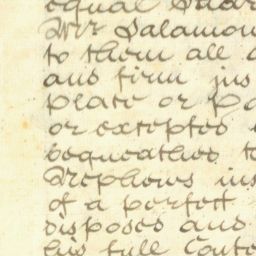 equal Shar
Mr Salamon
to them all
and firm ins
place or Po
or excepted
bequeathed to
Nephews ins
of a perfect
disposed and
his full Conte